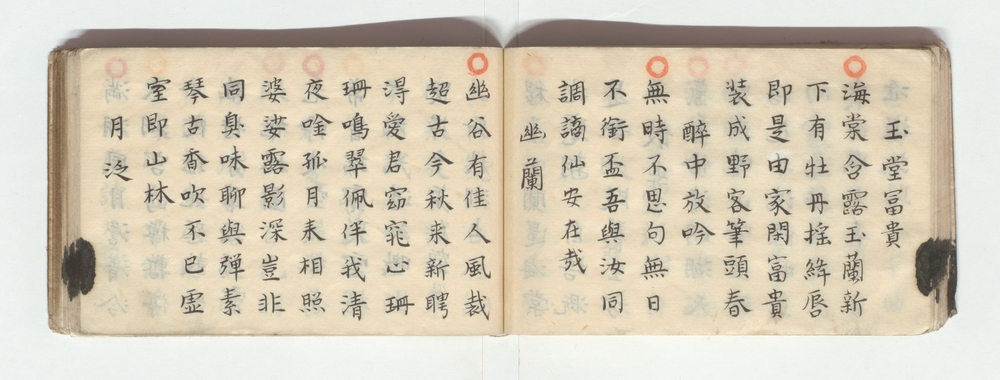 玉堂冨貴
海棠含露玉蘭新
下有牡丹揺絳唇
即是由家閑富貴
装成野客筆頭春
醉中放吟
無時不思句無日
不銜盃吾與汝同
調謫仙安在哉
幽蘭
幽谷有佳人風裁
超古今秋来新聘
淂愛君窈窕心珊
珊鳴翠佩伴我清
夜唫孤月来相照
婆娑露影深豈非
同臭味聊與弾素
琴古香吹不已虚
室即山林
月泛